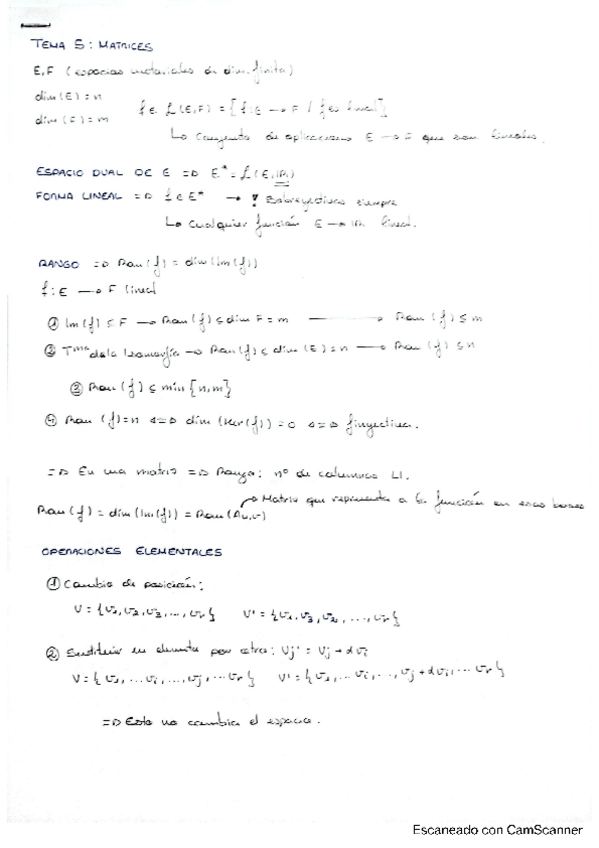 TEMA 5: MATRICES
E, F (espacios vectoriales de dim. finita)
dim(E) = n
dim(F) = m
f ∈ L(E,F) = {f: E → F / f es lineal}
↳ Conjunto de aplicaciones E → F que son lineales.
ESPACIO DUAL DE E => E* = L(E, IR)
FORMA LINEAL => f ∈ E* → Sobreyectivas siempre
↳ Cualquier función E → IR lineal.
RANGO => Ran(f) = dim(Im(f))
f: E → F lineal
① Im(f) ≤ F → Ran(f) ≤ dim F = m → Ran(f) ≤ m
② Tma de la Isomorfía → Ran(f) ≤ dim(E) = n → Ran(f) ≤ n
③ Ran(f) ≤ min{n,m}
④ Ran(f) = n <=> dim(Ker(f)) = 0 <=> f inyectiva.
=> En una matriz => Rango: nº de columnas LI.
Matriz que representa a la función en esas bases
Ran(f) = dim(Im(f)) = Ran(Au,v)
OPERACIONES ELEMENTALES
① Cambio de posición:
V = {v1, v2, v3, ..., vr} V' = {v1, v3, v2, ..., vr}
② Sustituir un elemento por otro: Vj' = Vj + αvi
V = {v1, ... vi, ..., vj, ... vr} V' = {v1, ... vi, ..., vj + αvi, ... vr}
=> Esto no cambia el espacio.
Escaneado con CamScanner